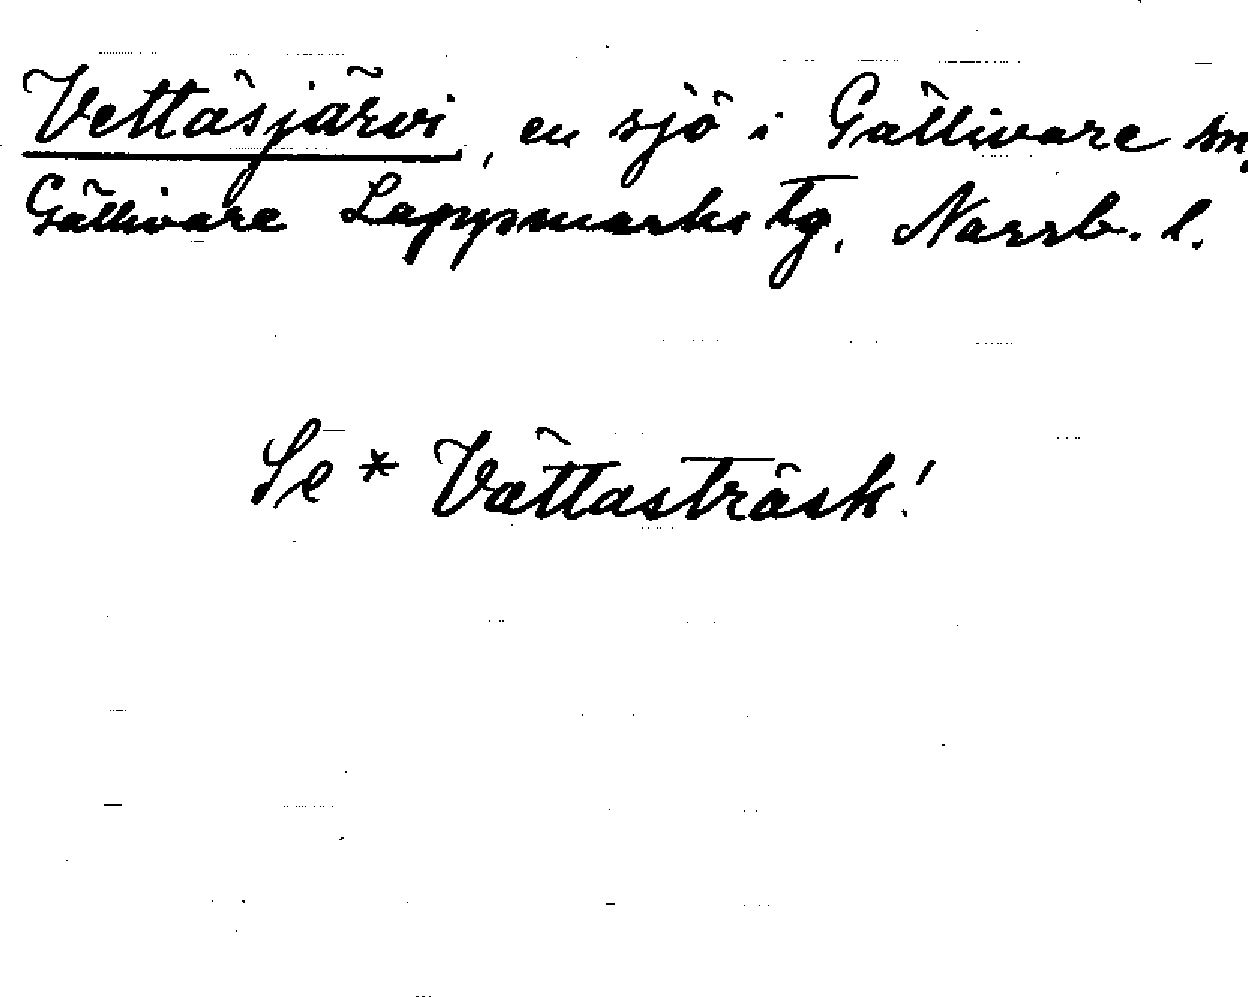 Vettäsjärvi, en sjö i Gällivare sn,
Gällivare Lappmarks tg, Norrb. l.
Se * Vättasträsk!